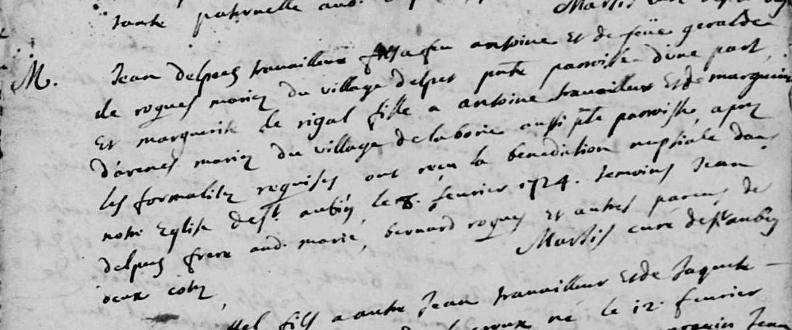 tante paternelle aud.
Martis
M. Jean delpuch travailleur fils a feu antoine et de feüe geralde
de roques mariez du village delper pnte parroisse d'une part
et marguerite de rigal fille a antoine travailleur et de marguerite
d'avenes mariez du village de la borie aussi pnte parroisse, apres
les formalitez requises ont recu la benediction nuptiale dans
notre Eglise de st aubin le 8. fevrier 1724. temoins Jean
delpuch frere aud. marié, bernard roques et autres parens de
deux cotez
Martis curé de st aubin
fils a autre Jean travailleur et de Jaquete
né le 12. fevrier
Jean